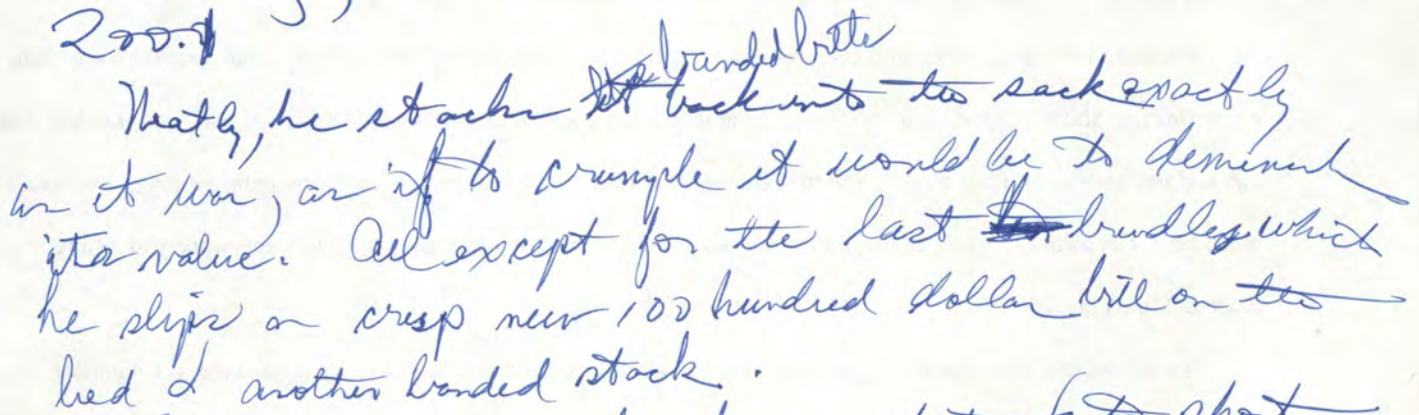 200.
banded bills
Neatly, he stacks back into the sack exactly
as it was, as if to crumple it would be to deminish
its value. All except for the last bundles which
he slips a crisp new 100 hundred dollar bill on the
bed & another banded stack.